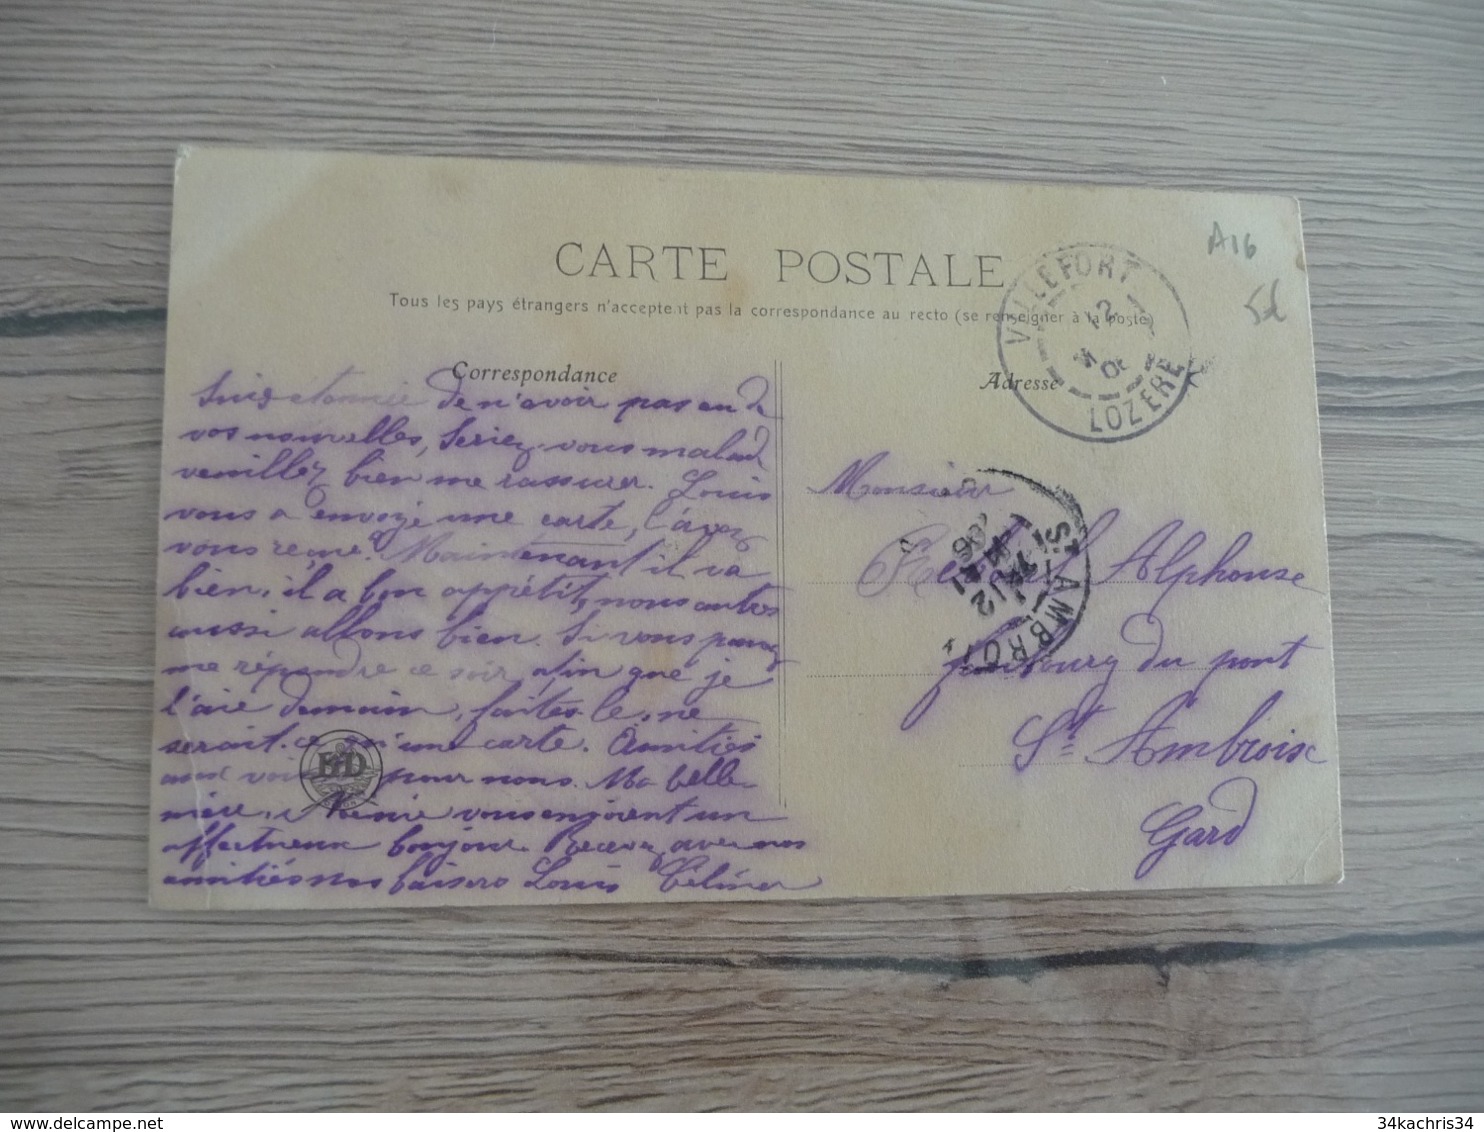 CARTE POSTALE
Tous les pays étrangers n'acceptent pas la correspondance au recto (se renseigner à la poste)
Correspondance
Adresse
A16
5€
VILLEFORT
12
LOZERE
Suis étonnée de n'avoir pas eu de
vos nouvelles, seriez-vous malade
veuillez bien me rassurer. Louis
vous a envoyé une carte, l'avez
vous reçue? Maintenant il va
bien, il a bon appétit, nous autres
aussi allons bien. Si vous pouvez
me répondre ce soir afin que je
l'aie demain, faites-le, ne
serait-ce qu'une carte. Amitiés
aux pour nous. Ma belle-
mère, vous envoient un
affectueux bonjour. Recevez avec nos
amitiés nos baisers Louis
BD
Monsieur
Alphonse
faubourg du pont
St Ambroix
Gard
ST AMBROIX
34kachris34